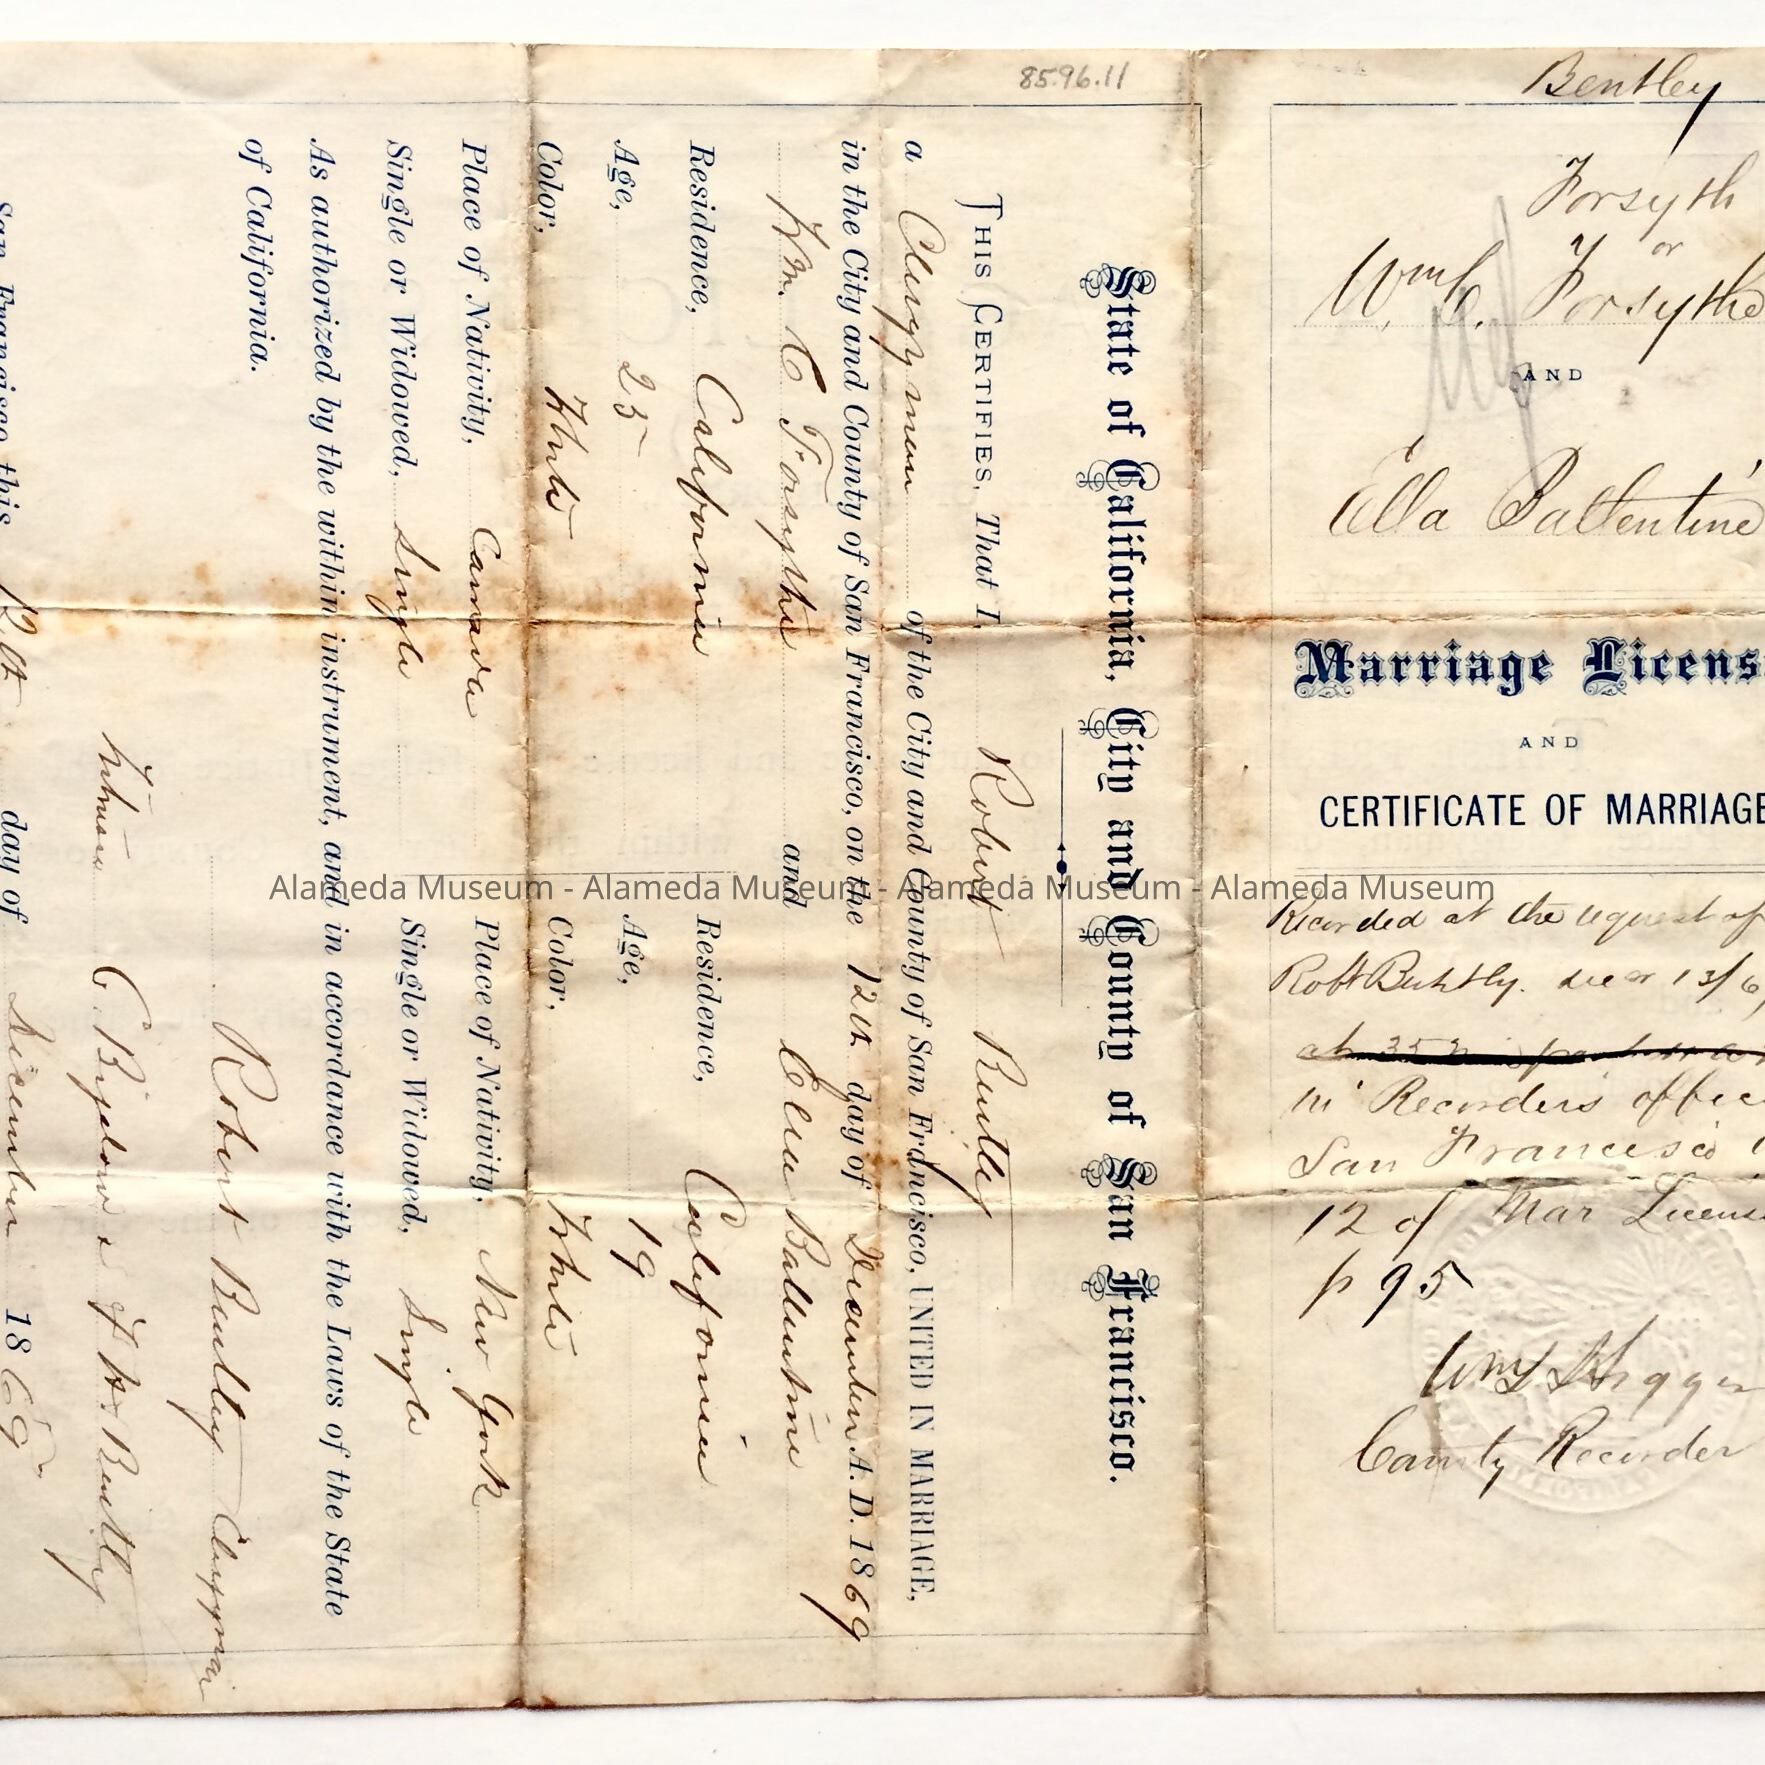 85.96.11
State of California, City and County of San Francisco.
THIS CERTIFIES, That I, Robert Bentley
a Clergyman of the City and County of San Francisco, UNITED IN MARRIAGE,
in the City and County of San Francisco, on the 12th day of December A. D. 1869
Wm. C Forsythe and Ella Ballentine
Residence, California Residence, California
Age, 25 Age, 19
Color, White Color, White
Place of Nativity, Canada Place of Nativity, New York
Single or Widowed, Single Single or Widowed, Single
As authorized by the within instrument, and in accordance with the Laws of the State
of California.
Robert Bentley Clergyman
Witness C. Bigelow & Bentley
San Francisco this 12th day of December 1869
Bentley
Forsyth
or
Wm C. Forsythe
AND
Ella Ballentine
Marriage License
AND
CERTIFICATE OF MARRIAGE
Recorded at the request of
Robt Bentley. Decr 13/6
in Recorders office
San Francisco
12 of Mar License
p 95
County Recorder
Alameda Museum - Alameda Museum - Alameda Museum - Alameda Museum